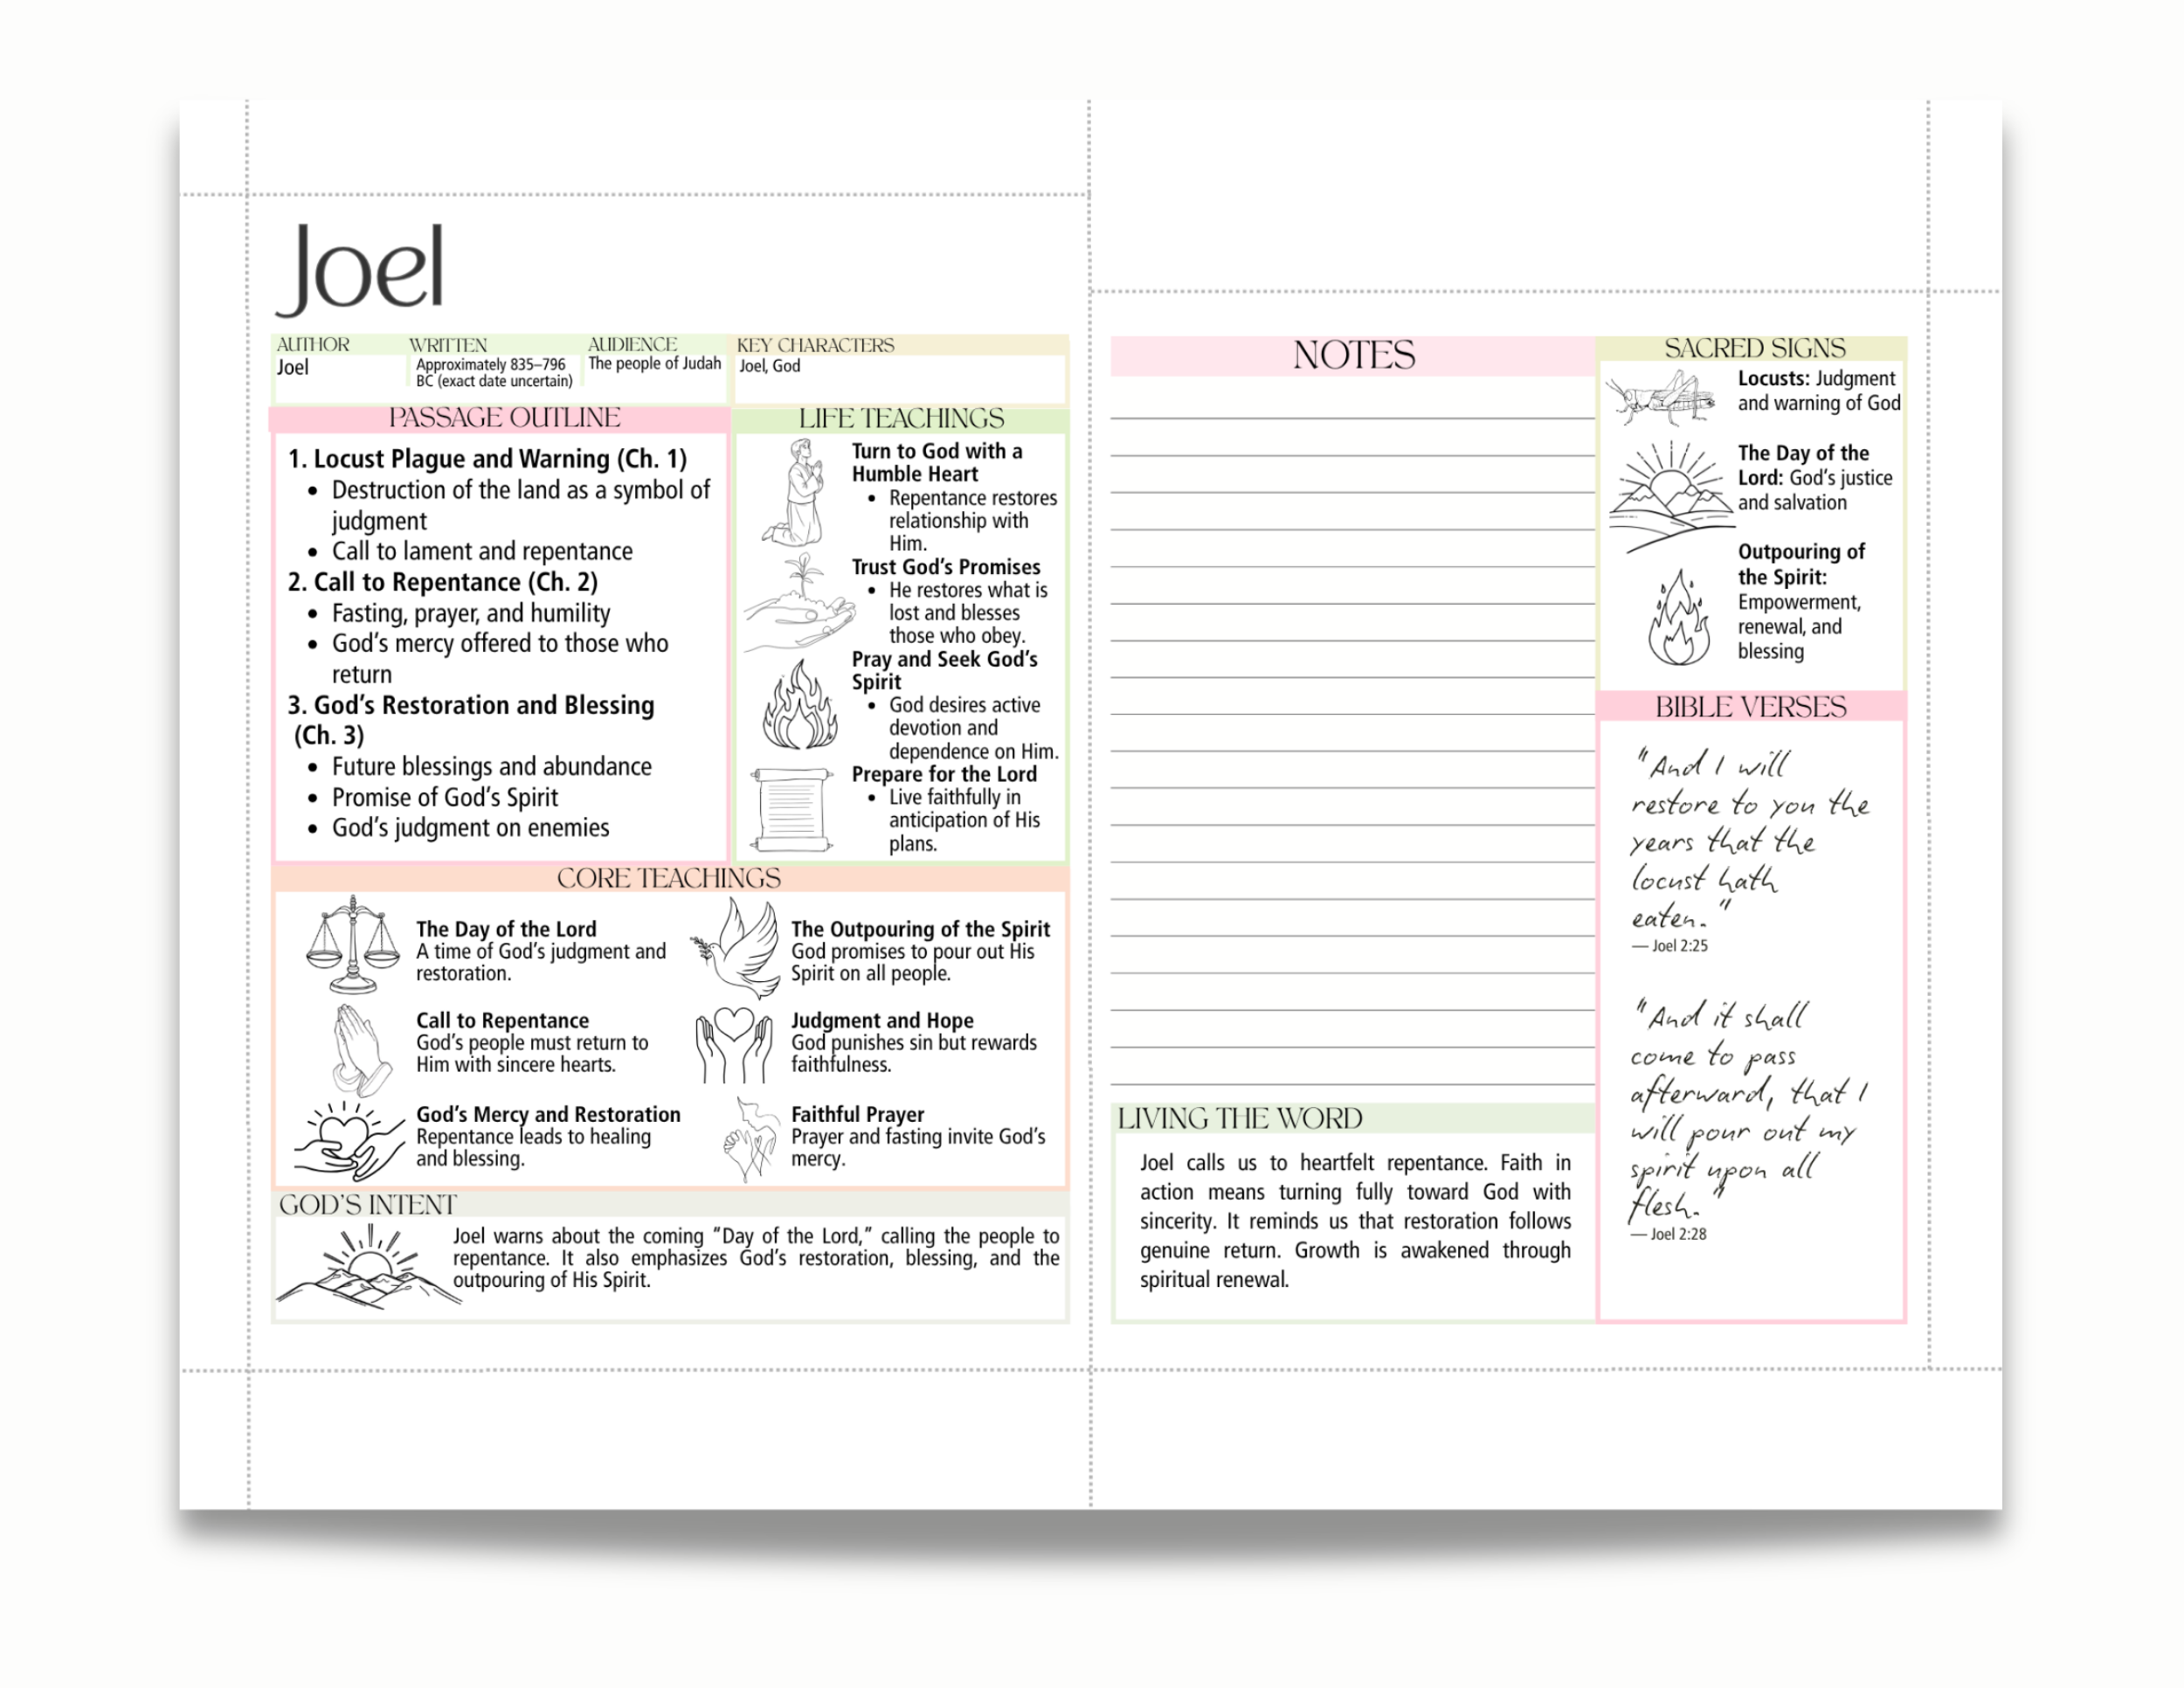 Joel
AUTHOR
Joel
WRITTEN
Approximately 835–796
BC (exact date uncertain)
AUDIENCE
The people of Judah
KEY CHARACTERS
Joel, God
PASSAGE OUTLINE
1. Locust Plague and Warning (Ch. 1)
• Destruction of the land as a symbol of
judgment
• Call to lament and repentance
2. Call to Repentance (Ch. 2)
• Fasting, prayer, and humility
• God's mercy offered to those who
return
3. God's Restoration and Blessing
(Ch. 3)
• Future blessings and abundance
• Promise of God's Spirit
• God's judgment on enemies
LIFE TEACHINGS
Turn to God with a
Humble Heart
• Repentance restores
relationship with
Him.
Trust God's Promises
• He restores what is
lost and blesses
those who obey.
Pray and Seek God's
Spirit
• God desires active
devotion and
dependence on Him.
Prepare for the Lord
• Live faithfully in
anticipation of His
plans.
CORE TEACHINGS
The Day of the Lord
A time of God's judgment and
restoration.
Call to Repentance
God's people must return to
Him with sincere hearts.
God's Mercy and Restoration
Repentance leads to healing
and blessing.
The Outpouring of the Spirit
God promises to pour out His
Spirit on all people.
Judgment and Hope
God punishes sin but rewards
faithfulness.
Faithful Prayer
Prayer and fasting invite God's
mercy.
GOD'S INTENT
Joel warns about the coming "Day of the Lord," calling the people to
repentance. It also emphasizes God's restoration, blessing, and the
outpouring of His Spirit.
NOTES
LIVING THE WORD
Joel calls us to heartfelt repentance. Faith in
action means turning fully toward God with
sincerity. It reminds us that restoration follows
genuine return. Growth is awakened through
spiritual renewal.
SACRED SIGNS
Locusts: Judgment
and warning of God
The Day of the
Lord: God's justice
and salvation
Outpouring of
the Spirit:
Empowerment,
renewal, and
blessing
BIBLE VERSES
"And I will
restore to you the
years that the
locust hath
eaten."
— Joel 2:25
"And it shall
come to pass
afterward, that I
will pour out my
spirit upon all
flesh."
— Joel 2:28